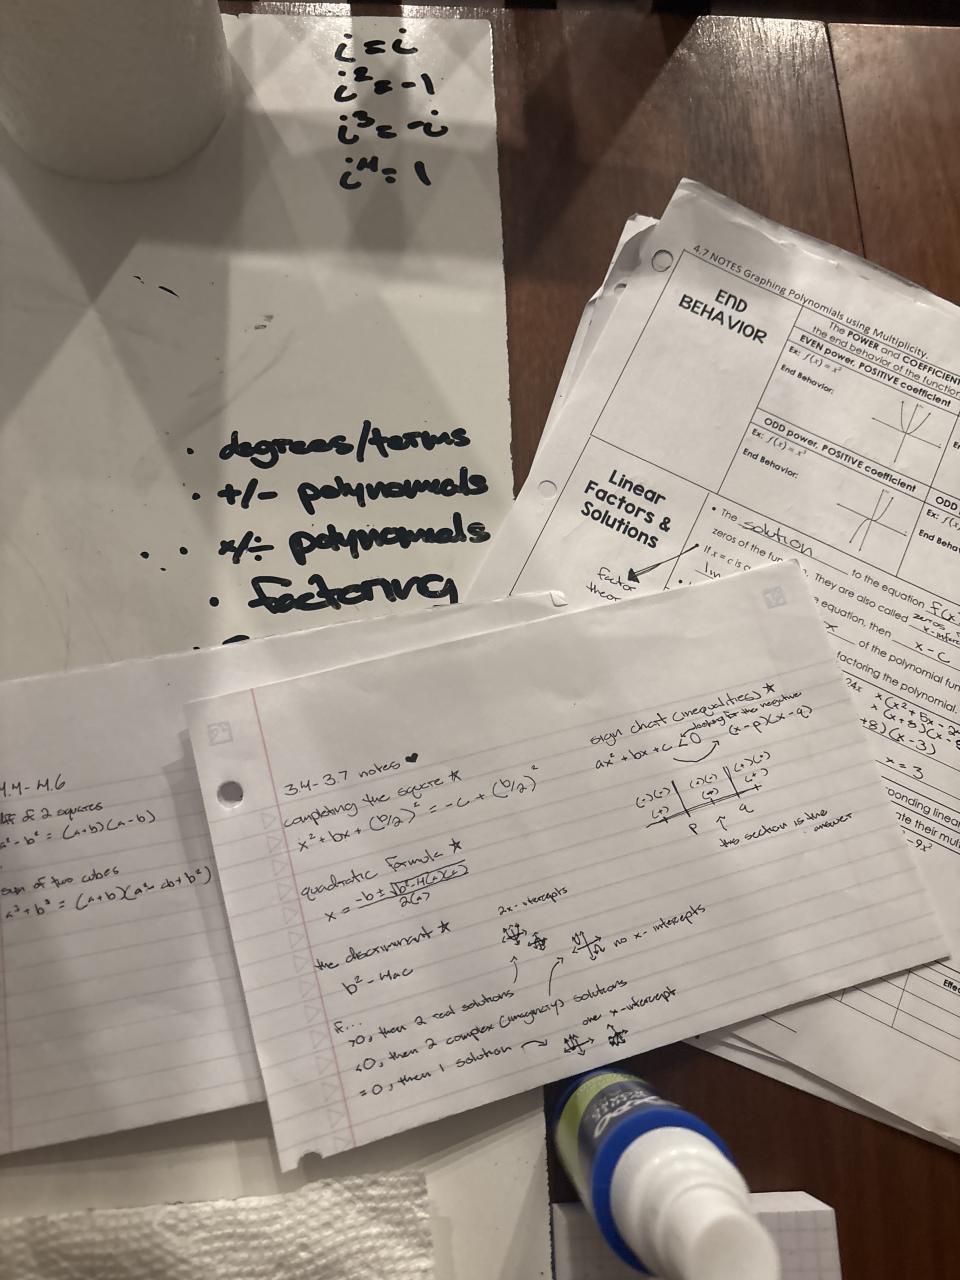 i = i
i² = -1
i³ = -i
i⁴ = 1
· degrees/terms
· +/- polynomials
· x/÷ polynomials
· factoring
4.7 NOTES Graphing Polynomials using Multiplicity.
END
BEHAVIOR
The POWER and COEFFICIENT
the end behavior of the function
EVEN power, POSITIVE coefficient
Ex: f(x) = x²
End Behavior:
ODD power, POSITIVE coefficient
Ex: f(x) = x³
End Behavior:
ODD
Ex: f(x)
End Behav
Linear
Factors &
Solutions
factor
theor
• The solution to the equation f(x)
zeros of the func . They are also called zeros
If x = c is equation, then x - c
of the polynomial fun
factoring the polynomial.
24x
x(x² + 5x - 2
x(x+8)(x-
+8)(x-3)
x = 3
ponding linear
te their mul
-9x²
Effec
4.4-4.6
diff of 2 squares
a² - b² = (a+b)(a-b)
sum of two cubes
a³ + b³ = (a+b)(a² - ab + b²)
3.4-3.7 notes ♥
completing the square ☆
x² + bx + (b/2)² = -c + (b/2)²
quadratic formula ☆
x = -b ± √b²-4(a)(c)
2(a)
the discriminant ☆
b² - 4ac
if...
>0, then 2 real solutions
2 x-intercepts
<0, then 2 complex (imaginary) solutions
no x-intercepts
=0, then 1 solution
one x-intercept
sign chart (inequalities) ☆
looking for the negative
ax² + bx + c < 0
(x-p)(x-q)
(-)(-) (-)(+) (+)(+)
(+) (-) (+)
p q
this section is the
answer
EXPO